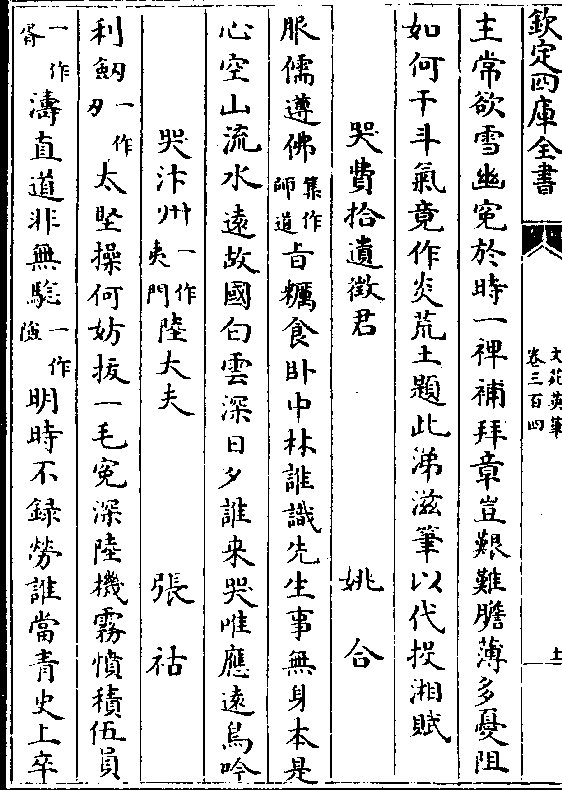 欽定四庫全書
文苑英華
卷三百四
上
主常欲雪幽寃於時一裨補拜章豈艱難膽薄多憂阻
如何干斗氣竟作炎荒土題此涕滋筆以代投湘賦
哭費拾遺徵君 姚合
服儒遵佛集作師道旨糲食卧中林誰識先生事無身本是
心空山流水遠故國白雲深日夕誰来哭唯應遠鳥吟
哭汴州一作夷門陸大夫 張祜
利劒一作刄太堅操何妨拔一毛寃深陸機霧憤積伍員
一作胥濤直道非無驗一作險明時不録勞誰當青史上卒